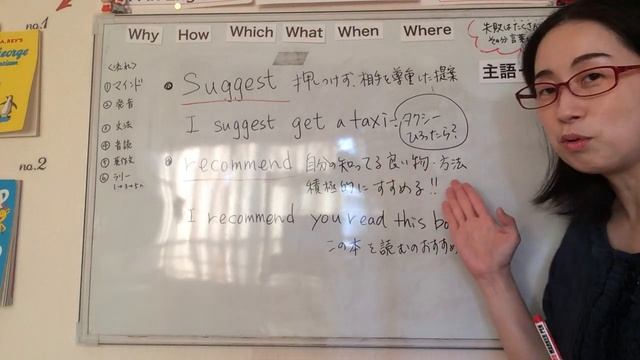 no.1
no.2
Why How Which What When Where
失敗はたくさん
その分言葉
主語
<流れ>
①マインド
②発音
③文法
④音読
⑤英作文
⑥ラリー
❶ Suggest 押しつけず、相手を尊重した提案
I suggest get a taxi
タクシー
ひろったら?
❷ recommend 自分の知ってる良い物・方法
積極的にすすめる!!
I recommend you read this bo
この本を読むのおすすめ